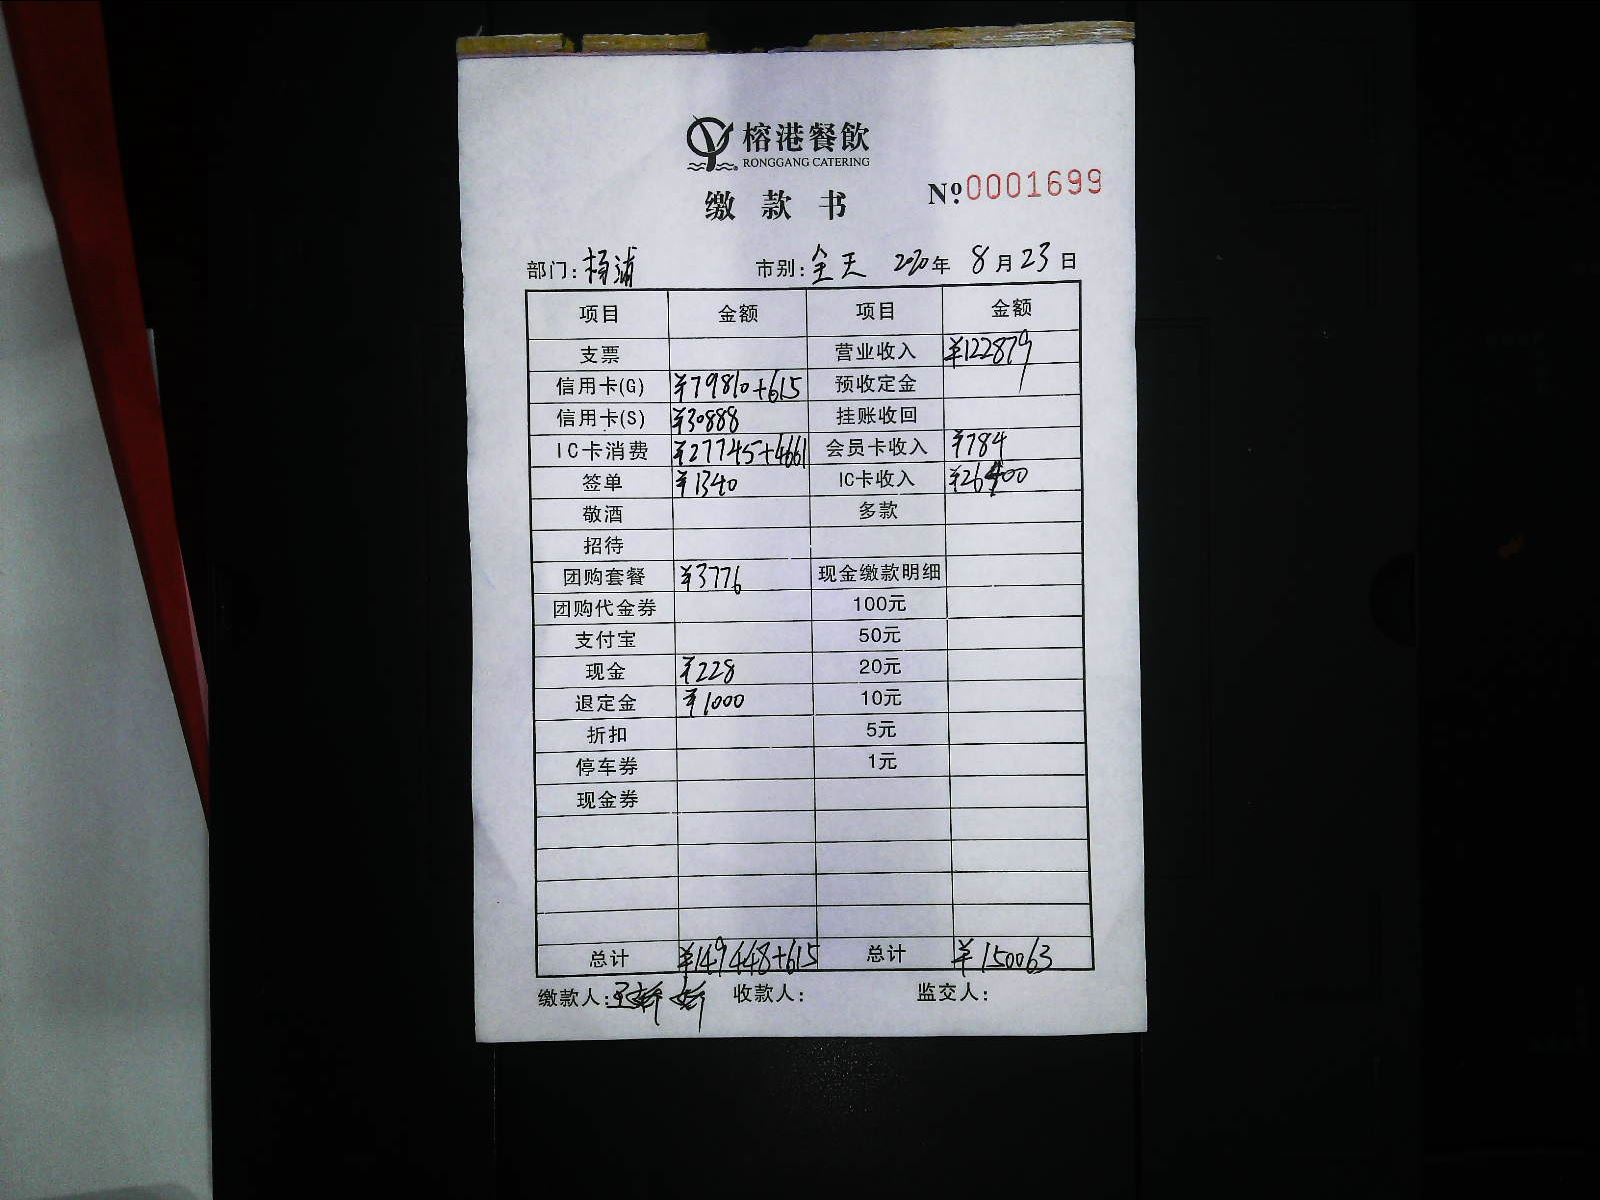 榕港餐飲
RONGGANG CATERING
缴款书 Nº 0001699
部门: 杨浦 市别: 全天 2020年 8月23日
项目 金额 项目 金额
支票 营业收入 ¥122879
信用卡(G) ¥79810+615 预收定金
信用卡(S) ¥30888 挂账收回
IC卡消费 ¥27745+4661 会员卡收入 ¥784
签单 ¥1340 IC卡收入 ¥26400
敬酒 多款
招待
团购套餐 ¥3776 现金缴款明细
团购代金券 100元
支付宝 50元
现金 ¥228 20元
退定金 ¥1000 10元
折扣 5元
停车券 1元
现金券
总计 ¥149448+615 总计 ¥150063
缴款人: 收款人: 监交人: